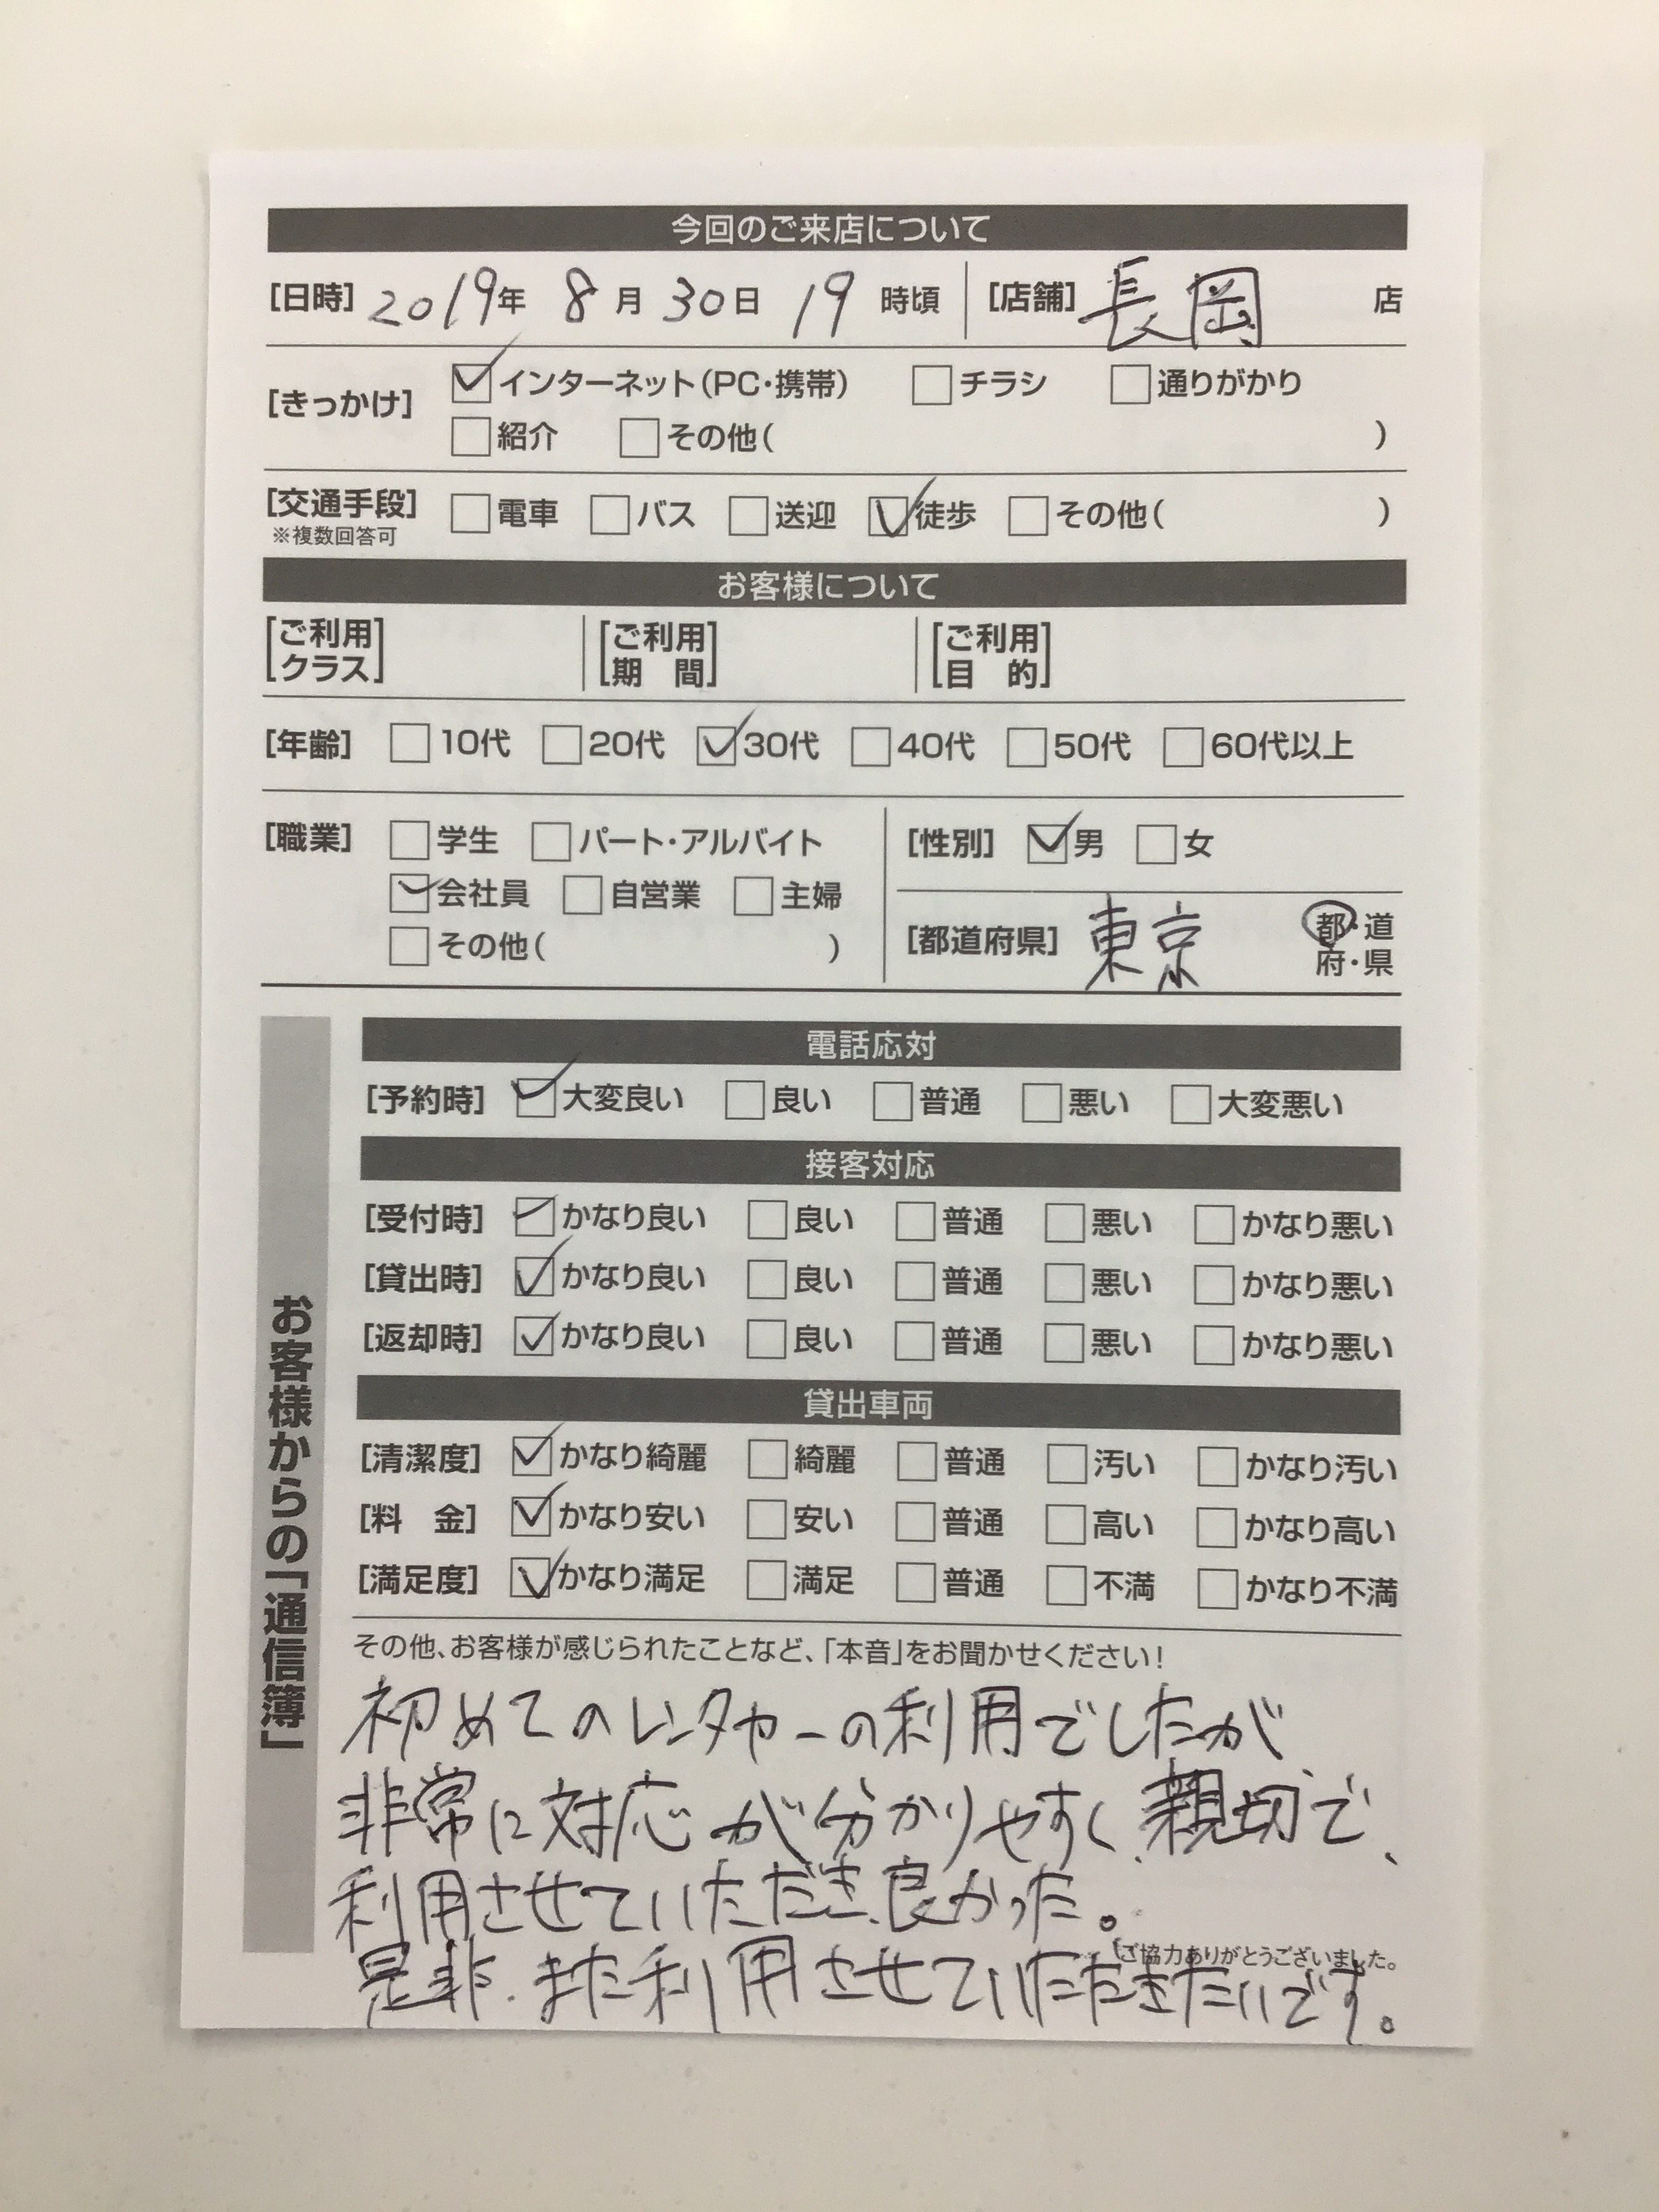 今回のご来店について
[日時] 2019年 8月 30日 19時頃 [店舗] 長岡 店
[きっかけ] ☑インターネット(PC・携帯) □チラシ □通りがかり
□紹介 □その他( )
[交通手段] □電車 □バス □送迎 ☑徒歩 □その他( )
※複数回答可
お客様について
[ご利用クラス] [ご利用期間] [ご利用目的]
[年齢] □10代 □20代 ☑30代 □40代 □50代 □60代以上
[職業] □学生 □パート・アルバイト [性別] ☑男 □女
☑会社員 □自営業 □主婦
□その他( ) [都道府県] 東京 都・道府・県
お客様からの「通信簿」
電話応対
[予約時] ☑大変良い □良い □普通 □悪い □大変悪い
接客対応
[受付時] ☑かなり良い □良い □普通 □悪い □かなり悪い
[貸出時] ☑かなり良い □良い □普通 □悪い □かなり悪い
[返却時] ☑かなり良い □良い □普通 □悪い □かなり悪い
貸出車両
[清潔度] ☑かなり綺麗 □綺麗 □普通 □汚い □かなり汚い
[料 金] ☑かなり安い □安い □普通 □高い □かなり高い
[満足度] ☑かなり満足 □満足 □普通 □不満 □かなり不満
その他、お客様が感じられたことなど、「本音」をお聞かせください!
初めてのレンタカーの利用でしたが
非常に対応が分かりやすく、親切で、
利用させていただき、良かった。
ご協力ありがとうございました。
是非、また利用させていただきたいです。